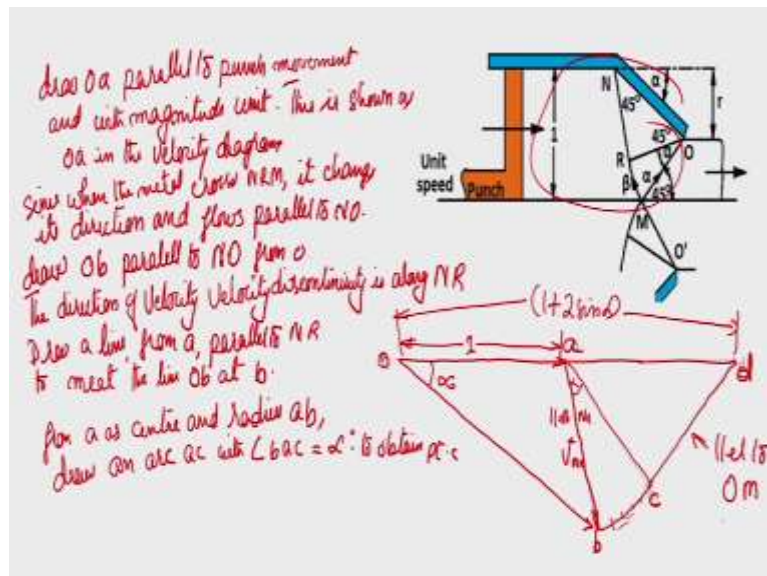 draw Oa parallel to punch movement
and with magnitude unit. This is shown as
Oa in the velocity diagram
Since when the metal cross NRM, it change
its direction and flows parallel to NO.
draw Ob paralell to NO from o
The direction of Velocity Velocity discontinuity is along NR
Draw a line from a, parallel to NR
to meet the line Ob at b.
from a as centre and radius ab,
draw an arc ac with ∠bac = α° to obtain pt. c
N
45°
α
r
1
45°
O
R
α
Unit
speed
Punch
β
α
45°
M
O'
(1+2sinα)
1
o
a
d
α
c
b
llel to
OM